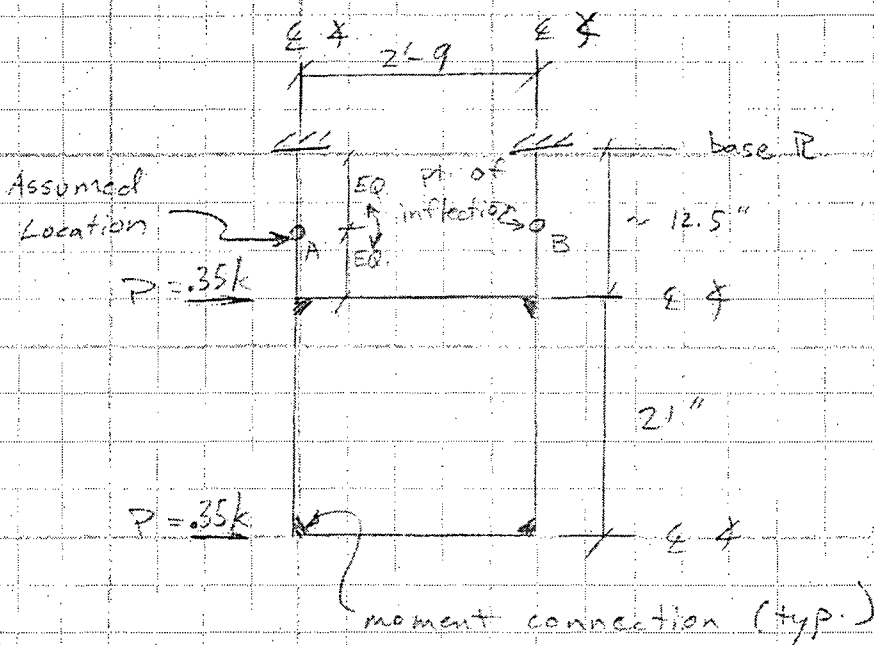 ℄ ∡
℄ ∡
2'-9
base ℞
Assumed
Location
EQ.
EQ.
pt. of
inflection
A
B
~ 12.5"
P = .35k
℄ ∡
21"
P = .35k
℄ ∡
moment connection (typ.)